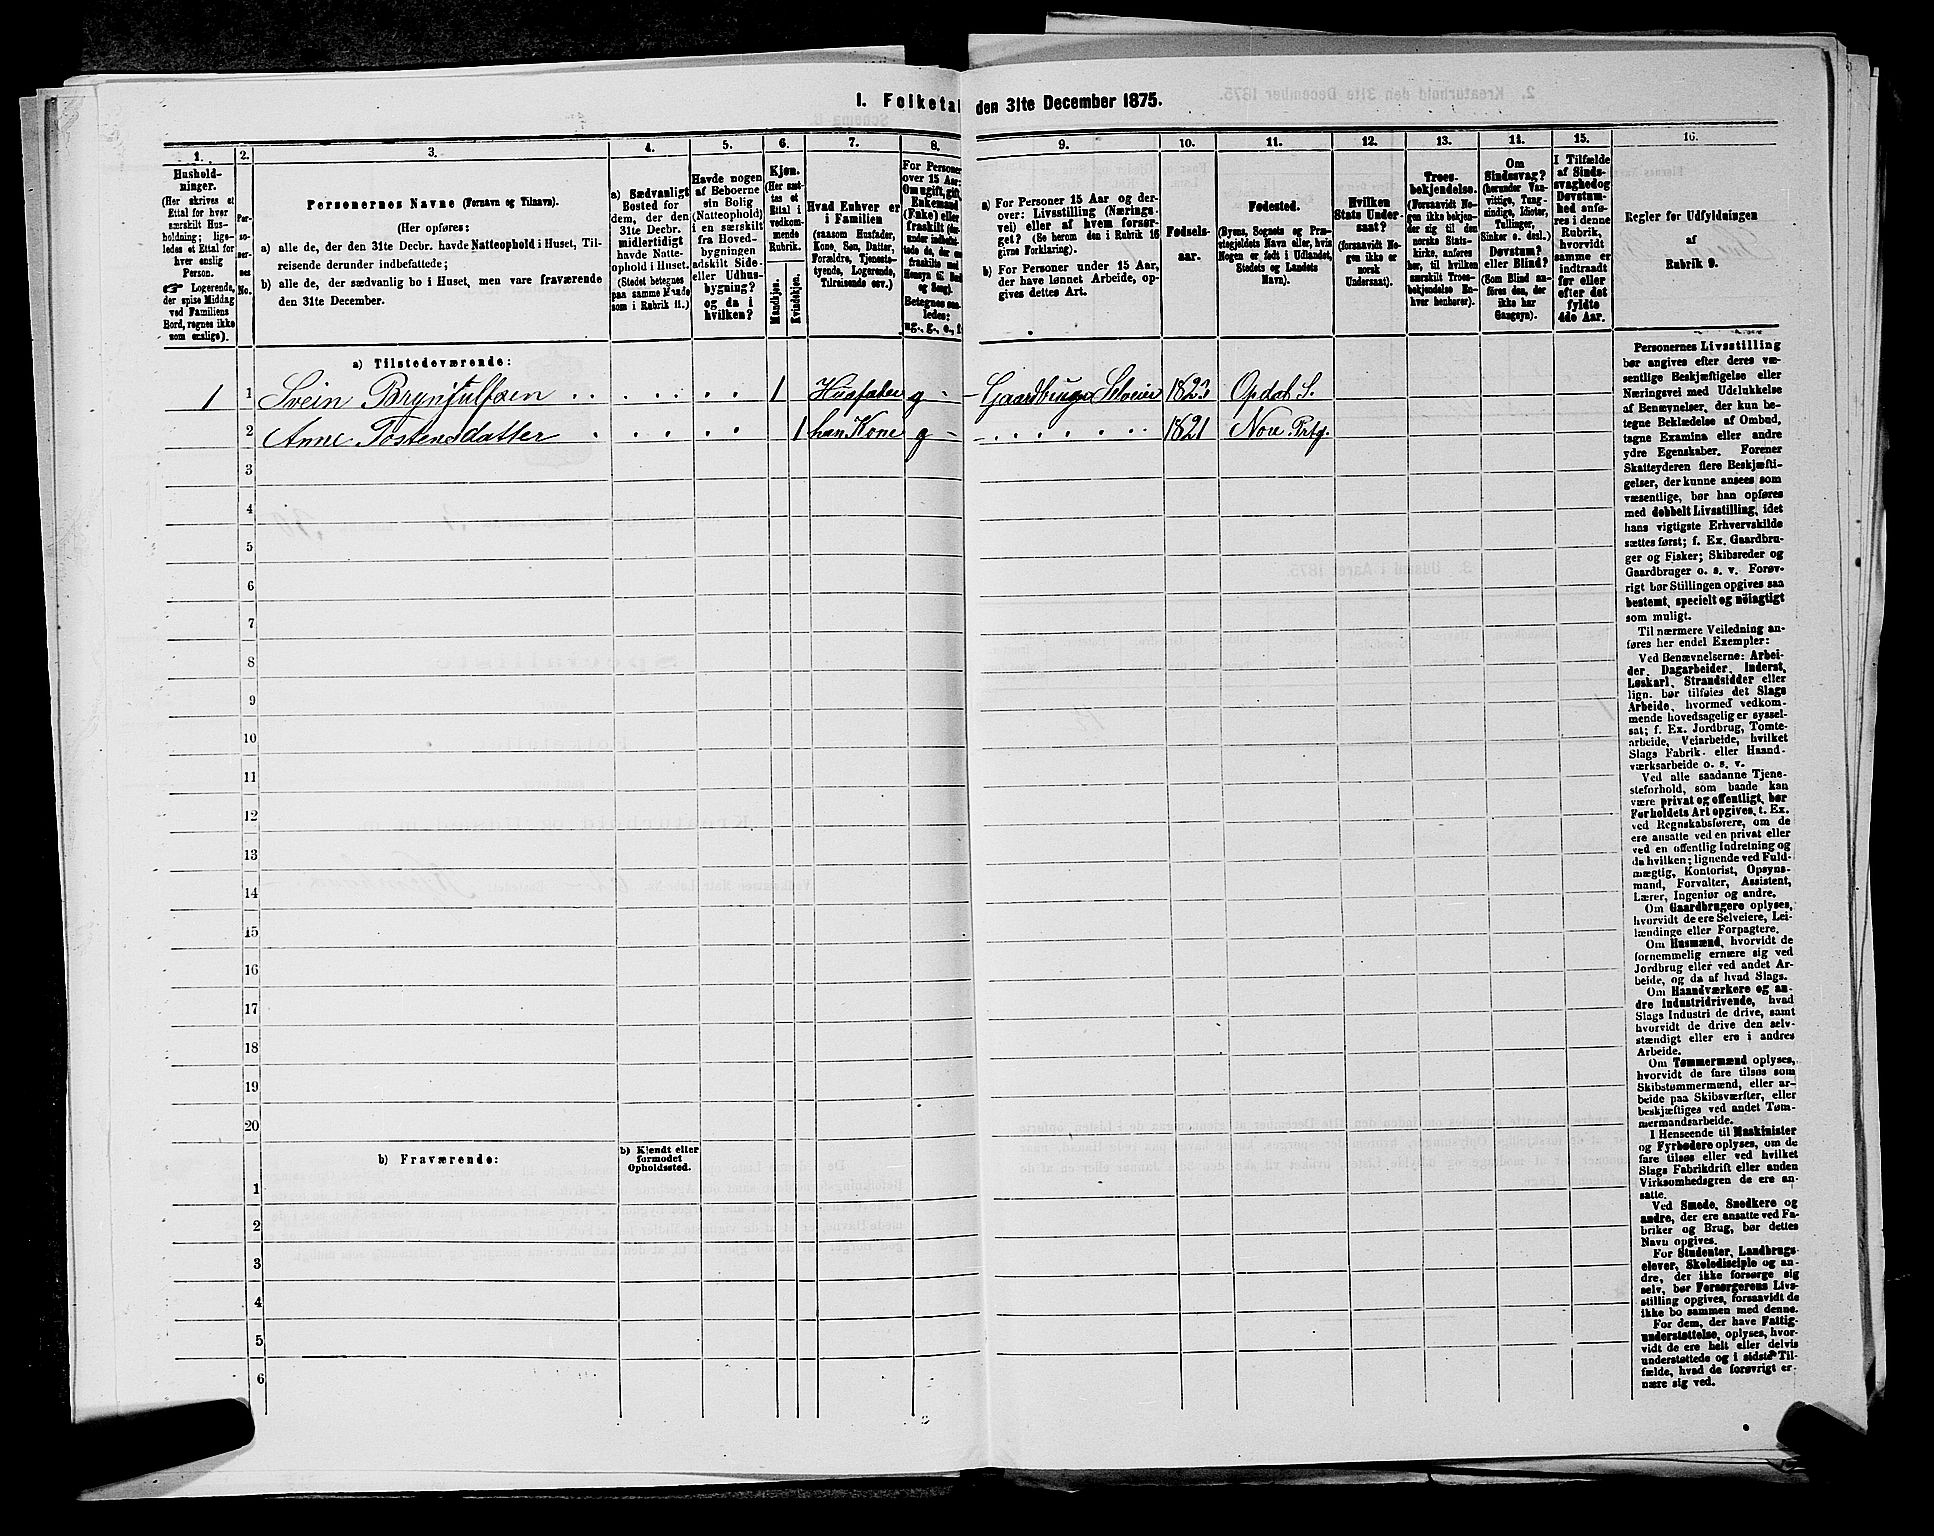 1. Folketal den 31te December 1875.
1. 2. 3. 4. 5. 6. 7. 8. 9. 10. 11. 12. 13. 14. 15. 16.
Hushold-
ninger.
(Her skrives et
Ettal for hver
særskilt Hus-
holdning; lige-
ledes et Ettal for
hver enslig
Person.
☛ Logerende,
der spise Middag
ved Familiens
Bord, regnes ikke
som enslige).
Per-
so-
ner-
nes
No.
Personernes Navne (Fornavn og Tilnavn).
(Her opføres:
a) alle de, der den 31te Decbr. havde Natteophold i Huset, Til-
reisende derunder indbefattede;
b) alle de, der sædvanlig bo i Huset, men vare fraværende
den 31te December.
a) Sædvanligt
Bosted for
dem, der den
31te Decbr.
midlertidigt
havde Natte-
ophold i Huset.
(Stedet betegnes
paa samme Maade
som i Rubrik 11.)
Havde nogen
af Beboerne
sin Bolig
(Natteophold)
i en særskilt
fra Hoved-
bygningen
adskilt Side-
eller Udhus-
bygning?
og da i
hvilken?
Kjøn.
(Her sæt-
tes et
Ettal i
vedkom-
mende
Rubrik.
Mandkjøn.
Kvindekjøn.
Hvad Enhver er
i Familien
(saasom Husfader,
Kone, Søn, Datter,
Forældre, Tjeneste-
tyende, Logerende,
Tilreisende osv.)
For Personer
over 15 Aar:
Om ugift, gift,
Enkemand
(Enke) eller
fraskilt (der-
under indbefat-
tede de, der ere
fraskilte med
Hensyn til Bord
og Seng).
Betegnes saa-
ledes:
ug., g., e., f.
a) For Personer 15 Aar og der-
over: Livsstilling (Nærings-
vei) eller af hvem forsør-
get? (Se herom den i Rubrik 16
givne Forklaring).
b) For Personer under 15 Aar,
der have lønnet Arbeide, op-
gives dettes Art.
Fødsels-
aar.
Fødested.
(Byens, Sognets og Præ-
stegjeldets Navn eller, hvis
Nogen er født i Udlandet,
Stedets og Landets
Navn).
Hvilken
Stats Under-
saat?
(forsaavidt No-
gen ikke er
norsk
Undersaat).
Troes-
bekjendelse.
(Forsaavidt No-
gen ikke bekjen-
der sig til den
norske Stats-
kirke, anføres
her, til hvilken
særskilt Troes-
bekjendelse En-
hver henhører).
Om
Sindssvag?
(herunder Van-
vittige, Tung-
sindige, Idioter,
Tullinger,
Sinker o. desl.)
Døvstum?
eller Blind?
(Som Blind an-
føres den, der
ikke har
Gangsyn).
I Tilfælde
af Sinds-
svaghed og
Døvstum-
hed anfø-
res i denne
Rubrik,
hvorvidt
samme er
indtraadt
før eller
efter det
fyldte
4de Aar.
Regler for Udfyldningen
af
Rubrik 9.
a) Tilstedeværende:
1 1 Svein Brynjulfsen 1 Husfader g Gaardbruger Selveier 1823 Opdal S.
2 Anne Tostensdatter 1 hans Kone g 1821 Nore Prtg.
3
4
5
6
7
8
9
10
11
12
13
14
15
16
17
18
19
20
b) Fraværende:
b) Kjendt eller
formodet
Opholdssted.
1
2
3
4
5
6
Personernes Livsstilling
bør angives efter deres væ-
sentlige Beskjæftigelse eller
Næringsvei med Udelukkelse
af Benævnelser, der kun be-
tegne Beklædelse af Ombud,
tagne Examina eller andre
ydre Egenskaber. Forener
Skatteyderen flere Beskjæfti-
gelser, der kunne ansees som
væsentlige, bør han opføres
med dobbelt Livsstilling, idet
hans vigtigste Erhvervskilde
sættes først; f. Ex. Gaardbru-
ger og Fisker; Skibsreder og
Gaardbruger o. s. v. Forøv-
rigt bør Stillingen opgives saa
bestemt, specielt og nøiagtigt
som muligt.
Til nærmere Veiledning an-
føres her endel Exempler:
Ved Benævnelserne: Arbei-
der, Dagarbeider, Inderst,
Løskarl, Strandsidder eller
lign. bør tilføies det Slags
Arbeide, hvormed vedkom-
mende hovedsagelig er syssel-
sat; f. Ex. Jordbrug, Tomte-
arbeide, Veiarbeide, hvilket
Slags Fabrik- eller Haand-
værksarbeide o. s. v.
Ved alle saadanne Tjene-
steforhold, som baade kan
være privat og offentligt, bør
Forholdets Art opgives, t. Ex.
ved Regnskabsførere, om de
ere ansatte ved en privat eller
ved en offentlig Indretning og
da hvilken; lignende ved Fuld-
mægtig, Kontorist, Opsyns-
mand, Forvalter, Assistent,
Lærer, Ingeniør og andre.
Om Gaardbrugere oplyses,
hvorvidt de ere Selveiere, Lei-
lændinge eller Forpagtere.
Om Husmænd, hvorvidt de
fornemmelig ernære sig ved
Jordbrug eller ved andet Ar-
beide, og da af hvad Slags.
Om Haandværkere og an-
dre Industridrivende, hvad
Slags Industri de drive, samt
hvorvidt de drive den selv-
stændigt eller ere i andres
Arbeide.
Om Tømmermænd oplyses,
hvorvidt de fare tilsøs som
Skibstømmermænd, eller ar-
beide paa Skibsværfter, eller
beskjæftiges ved andet Tøm-
mermandsarbeide.
I Henseende til Maskinister
og Fyrbødere oplyses, om de
fare tilsøs eller ved hvilket
Slags Fabrikdrift eller anden
Virksomhedsgren de ere an-
satte.
Ved Smede, Snedkere og
andre, der ere ansatte ved Fa-
briker og Brug, bør dettes
Navn opgives.
For Studenter, Landbrugs-
elever, Skoledisciple og an-
dre, der ikke forsørge sig
selv, bør Forsørgerens Livs-
stilling opgives, forsaavidt de
ikke bo sammen med denne.
For dem, der have Fattig-
understøttelse, oplyses, hvor-
vidt de ere helt eller delvis
understøttede og i sidste Til-
fælde, hvad de forøvrigt er-
nære sig ved.